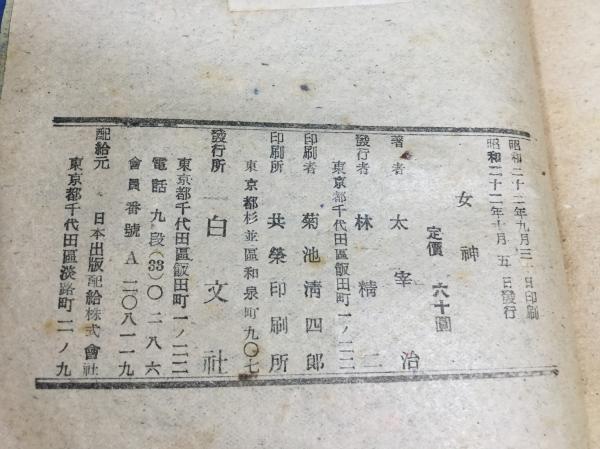 昭和二十二年九月三〇日印刷
昭和二十二年十月五日發行
女神
定價 六十圓
著者 太宰治
發行者 林精二
東京都千代田區飯田町一ノ二二
印刷者 菊池淸四郎
印刷所 共榮印刷所
東京都杉並區和泉町九〇七
發行所 白文社
東京都千代田區飯田町一ノ二二
電話九段(33)〇二八六
會員番號A二〇八一一九
配給元 日本出版配給株式會社
東京都千代田區淡路町二ノ九